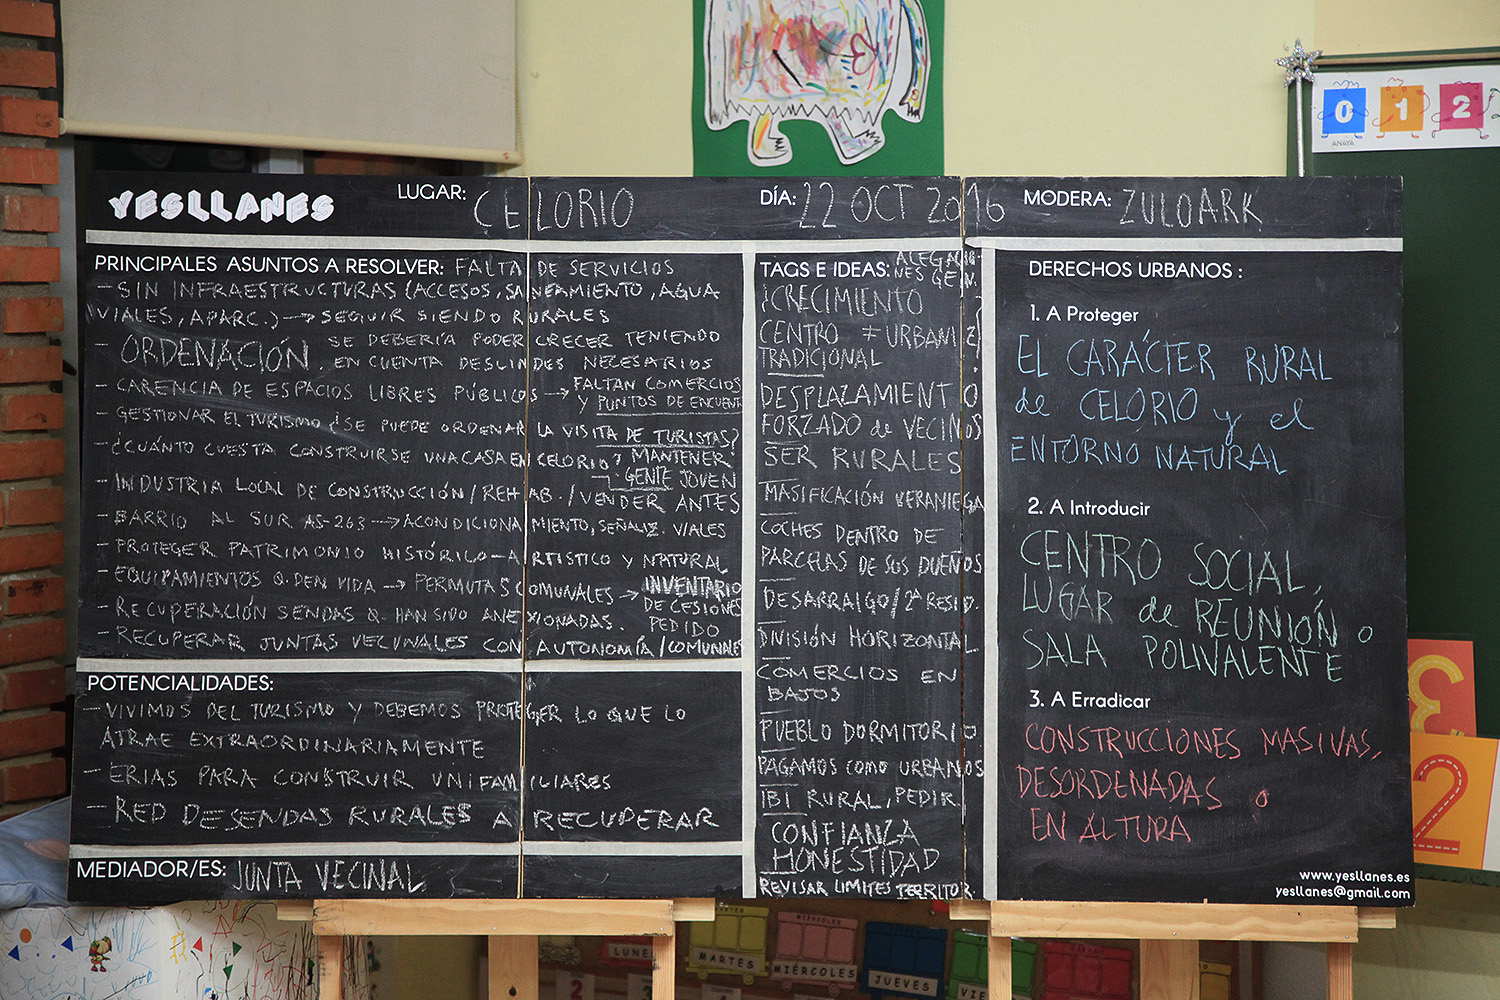 YESLLANES
LUGAR: CELORIO
DÍA: 22 OCT 2016
MODERA: ZULOARK
PRINCIPALES ASUNTOS A RESOLVER: FALTA DE SERVICIOS
- SIN INFRAESTRUCTURAS (ACCESOS, SANEAMIENTO, AGUA
VIALES, APARC.) → SEGUIR SIENDO RURALES
- ORDENACIÓN, SE DEBERÍA PODER CRECER TENIENDO
EN CUENTA DESLINDES NECESARIOS
- CARENCIA DE ESPACIOS LIBRES PÚBLICOS → FALTAN COMERCIOS
Y PUNTOS DE ENCUENT
- GESTIONAR EL TURISMO ¿SE PUEDE ORDENAR LA VISITA DE TURISTAS?
- ¿CUÁNTO CUESTA CONSTRUIRSE UNA CASA EN CELORIO? MANTENER
GENTE JOVEN
- INDUSTRIA LOCAL DE CONSTRUCCIÓN/REHAB./VENDER ANTES
- BARRIO AL SUR AS-263 → ACONDICIONAMIENTO, SEÑALIZ. VIALES
- PROTEGER PATRIMONIO HISTÓRICO-ARTISTICO Y NATURAL
- EQUIPAMIENTOS Q. DEN VIDA → PERMUTAS COMUNALES → INVENTARIO
DE CESIONES
PEDIDO
- RECUPERACIÓN SENDAS Q. HAN SIDO ANEXIONADAS.
- RECUPERAR JUNTAS VECINALES CON AUTONOMÍA/COMUNALES
POTENCIALIDADES:
- VIVIMOS DEL TURISMO Y DEBEMOS PROTEGER LO QUE LO
ATRAE EXTRAORDINARIAMENTE
- ERIAS PARA CONSTRUIR UNIFAMILIARES
- RED DE SENDAS RURALES A RECUPERAR
MEDIADOR/ES: JUNTA VECINAL
TAGS E IDEAS: ALEGACIO-
NES GEN.
¡CRECIMIENTO
CENTRO ≠ URBANIZ
TRADICIONAL
DESPLAZAMIENTO
FORZADO de VECINOS
SER RURALES
MASIFICACIÓN VERANIEGA
COCHES DENTRO DE
PARCELAS DE SUS DUEÑOS
DESARRAIGO/2ª RESID.
DIVISIÓN HORIZONTAL
COMERCIOS EN
BAJOS
PUEBLO DORMITORIO
PAGAMOS COMO URBANOS
IBI RURAL, PEDIR
CONFIANZA
HONESTIDAD
REVISAR LIMITES TERRITOR.
DERECHOS URBANOS :
1. A Proteger
EL CARÁCTER RURAL
de CELORIO y el
ENTORNO NATURAL
2. A Introducir
CENTRO SOCIAL,
LUGAR de REUNIÓN o
SALA POLIVALENTE
3. A Erradicar
CONSTRUCCIONES MASIVAS,
DESORDENADAS o
EN ALTURA
www.yesllanes.es
yesllanes@gmail.com
0 1 2
ANAYA
3
2
LUNE
MARTES
MIÉRCOLES
MIÉRCOLES
JUEVES
VIE
2
3